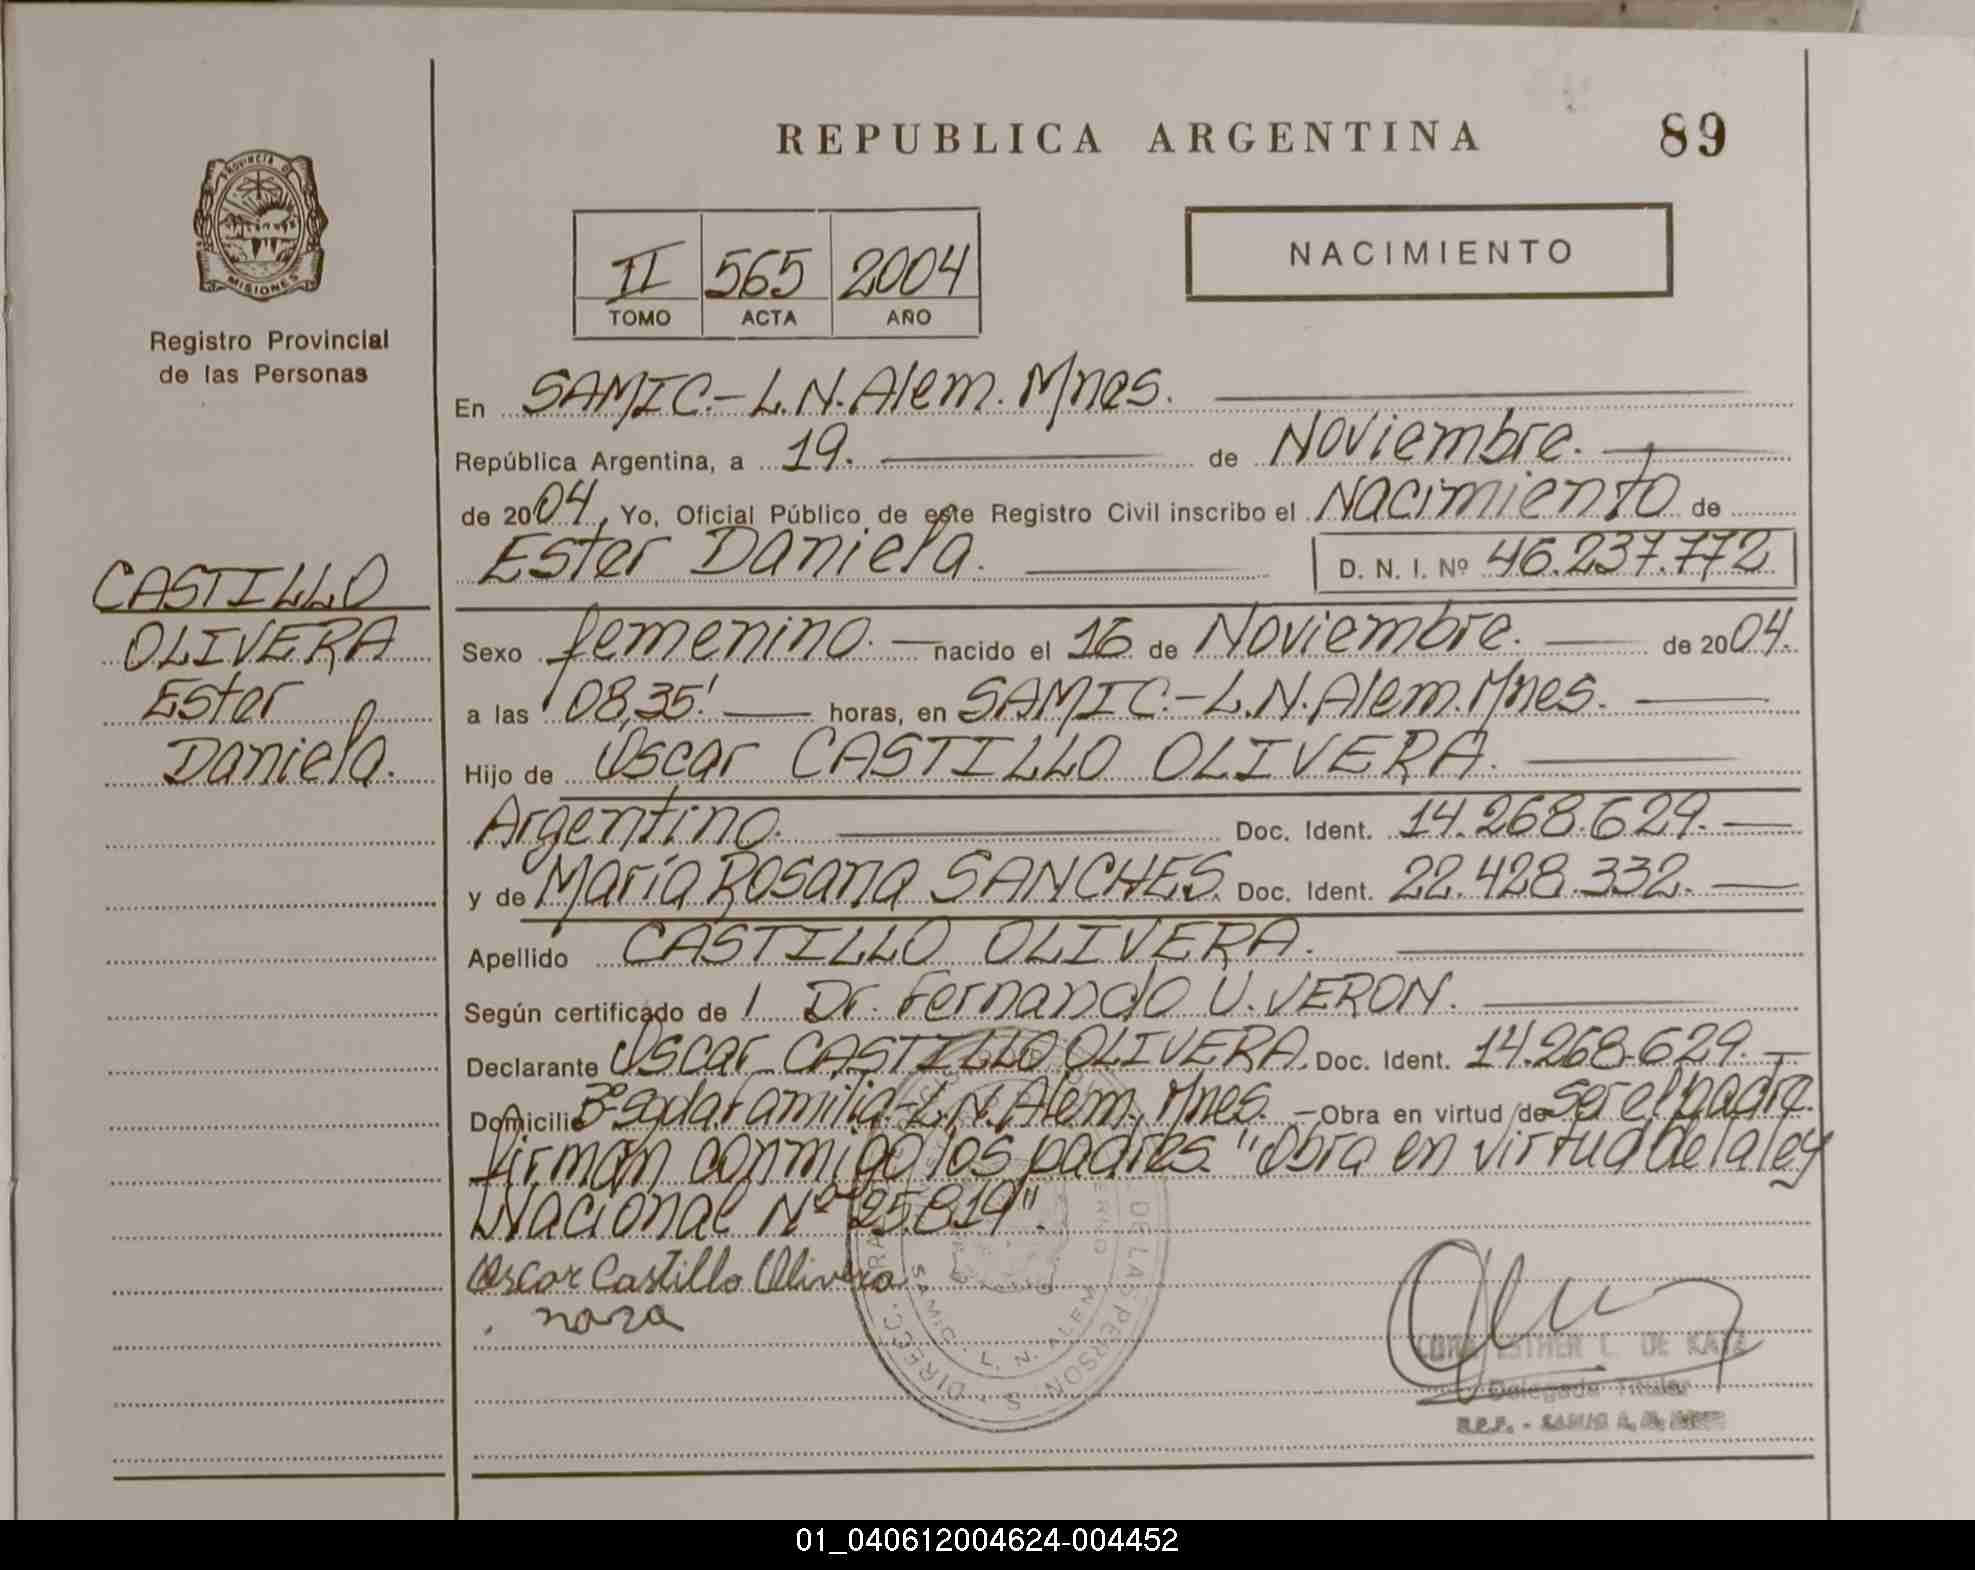 REPUBLICA ARGENTINA
89
PROVINCIA DE
MISIONES
Registro Provincial
de las Personas
II 565 2004
TOMO ACTA AÑO
NACIMIENTO
En SAMIC.-L.N.Alem.Mnes.
República Argentina, a 19. de Noviembre.
de 2004, Yo, Oficial Público de este Registro Civil inscribo el Nacimiento de
Ester Daniela. D. N. I. Nº 46.237.772
CASTILLO
OLIVERA
Ester
Daniela.
Sexo femenino. nacido el 16 de Noviembre. de 2004.
a las 08,35' horas, en SAMIC.-L.N.Alem.Mnes.
Hijo de Oscar CASTILLO OLIVERA.
Argentino. Doc. Ident. 14.268.629.
y de María Rosana SANCHES. Doc. Ident. 22.428.332.
Apellido CASTILLO OLIVERA.
Según certificado de l Dr. Fernando U. VERON.
Declarante Oscar CASTILLO OLIVERA. Doc. Ident. 14.268.629.
Domicilio Bº Sgda Familia-L.N.Alem., Mnes. Obra en virtud de ser el padre.
Firman conmigo los padres. "Obra en virtud de la ley
Nacional Nº 25.819".
Oscar Castillo Olivera
DE LAS PERSONAS
SAMIC. L. N. ALEM
ESTHER L. DE KATZ
Delegada Titular
01_040612004624-004452